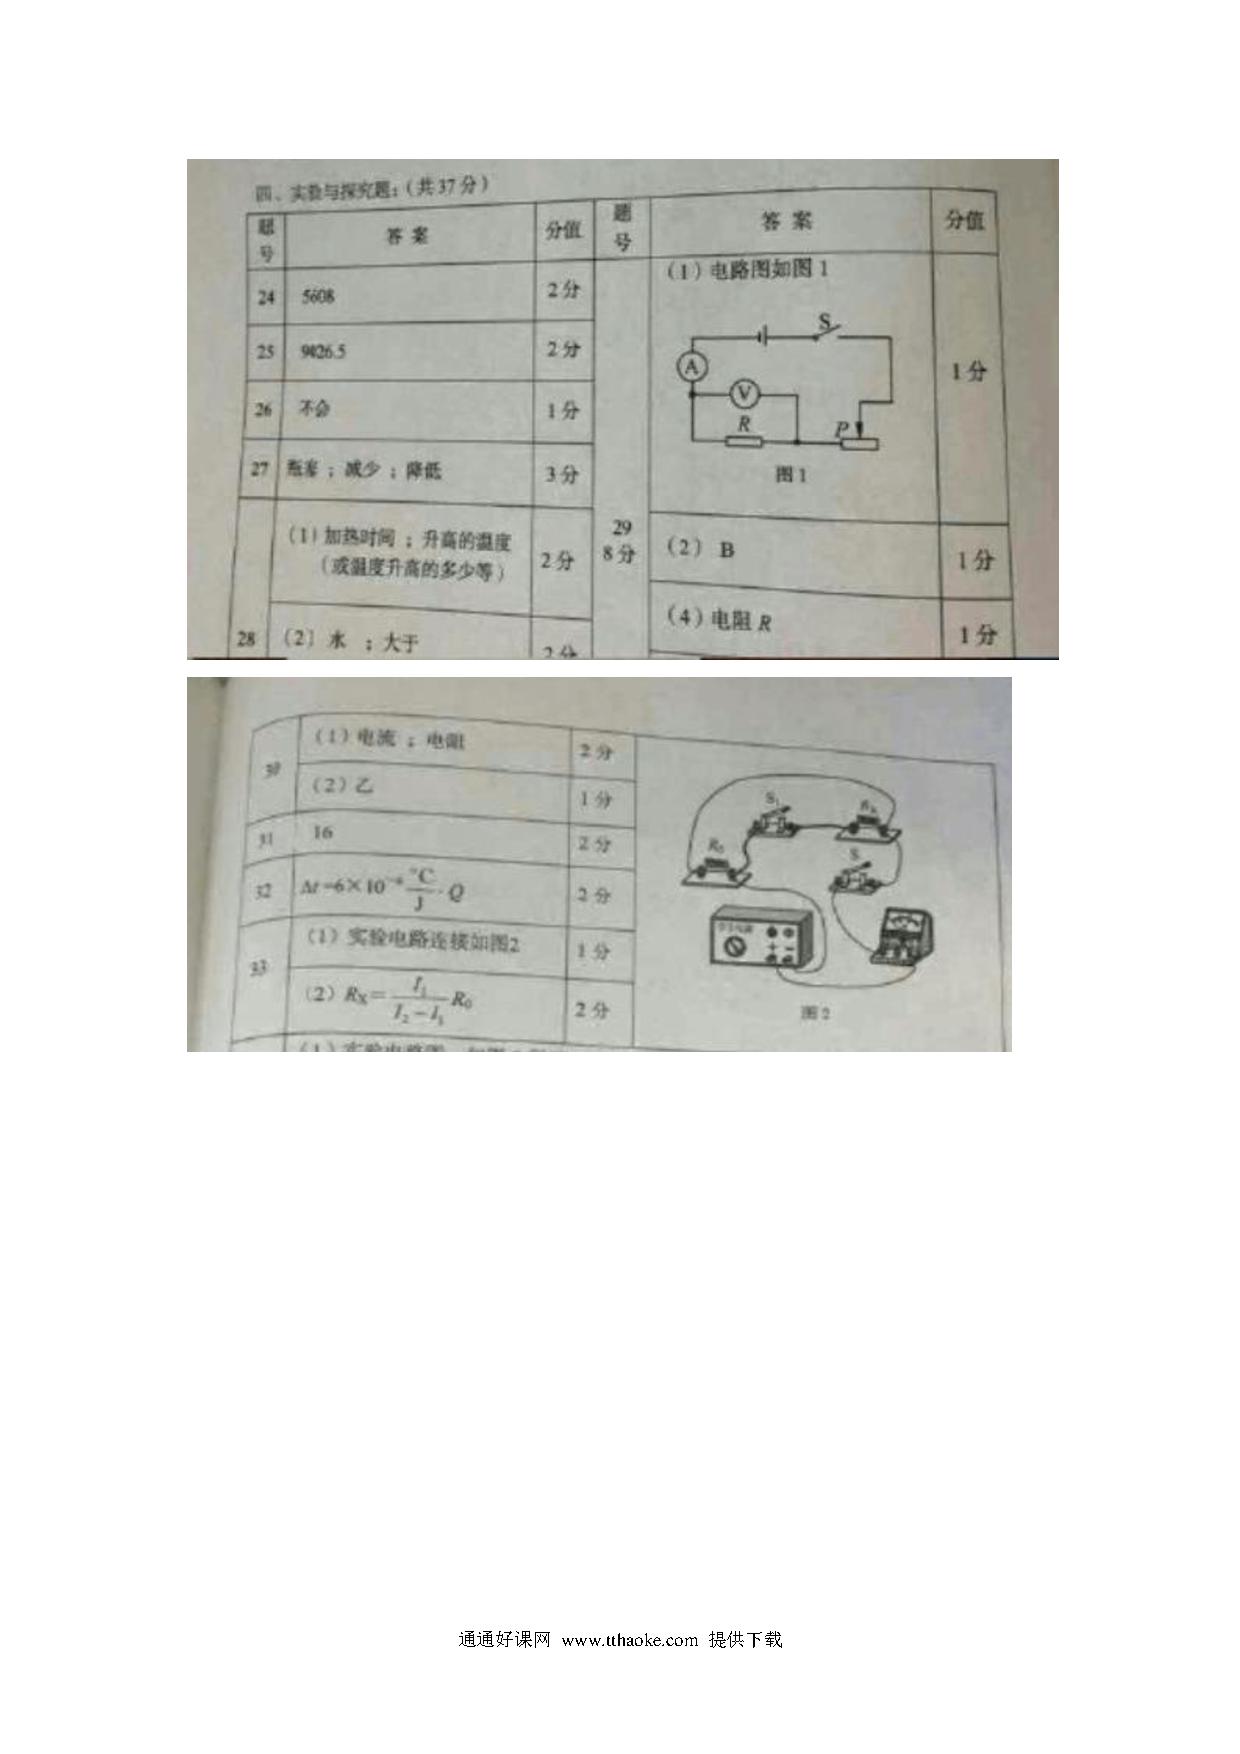 四、实验与探究题:(共37分)
题号 答案 分值 题号 答案 分值
24 5608 2分
25 9426.5 2分
26 不会 1分
27 瓶塞；减少；降低 3分
28 (1)加热时间；升高的温度
(或温度升高的多少等) 2分
(2)水 ；大于 2分
29
8分
(1)电路图如图1 1分
S
A
V
R
P
图1
(2) B 1分
(4)电阻R 1分
30 (1)电流；电阻 2分
(2)乙 1分
31 16 2分
32 Δt=6×10⁻⁶ ℃/J ·Q 2分
33 (1)实验电路连接如图2 1分
(2) RX= I1/(I2-I1) R0 2分
S1
RX
R0
S
图2
(1)实验电路图
通通好课网 www.tthaoke.com 提供下载